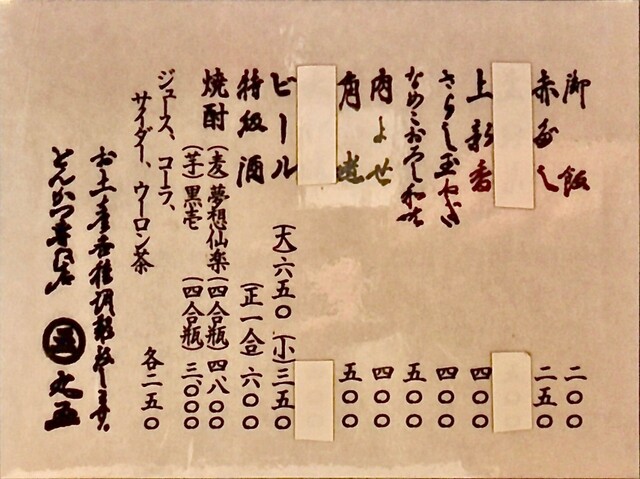 御飯 二〇〇
赤だし 二五〇
上新香 四〇〇
さらし玉ねぎ 四〇〇
なめこおろし和え 五〇〇
肉よせ 四〇〇
角煮 五〇〇
ビール (大)六五〇 (小)三五〇
特級酒 (正一合)六〇〇
焼酎 (麦)夢想仙楽 (四合瓶)四八〇〇
(芋)黒壱 (四合瓶)三、〇〇〇
ジュース、コーラ、
サイダー、ウーロン茶 各二五〇
お土産各種調製致します。
とんかつ専門店 丸五